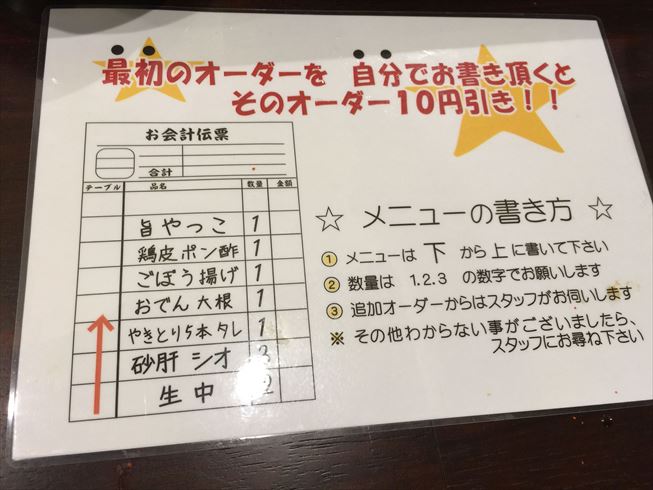 最初のオーダーを 自分でお書き頂くと
そのオーダー10円引き!!
お会計伝票
合計
テーブル 品名 数量 金額
旨やっこ 1
鶏皮ポン酢 1
ごぼう揚げ 1
おでん大根 1
やきとり5本タレ 1
砂肝 シオ 3
生中 2
☆ メニューの書き方 ☆
① メニューは 下 から 上 に書いて下さい
② 数量は 1.2.3 の数字でお願いします
③ 追加オーダーからはスタッフがお伺いします
※ その他わからない事がございましたら、
スタッフにお尋ね下さい